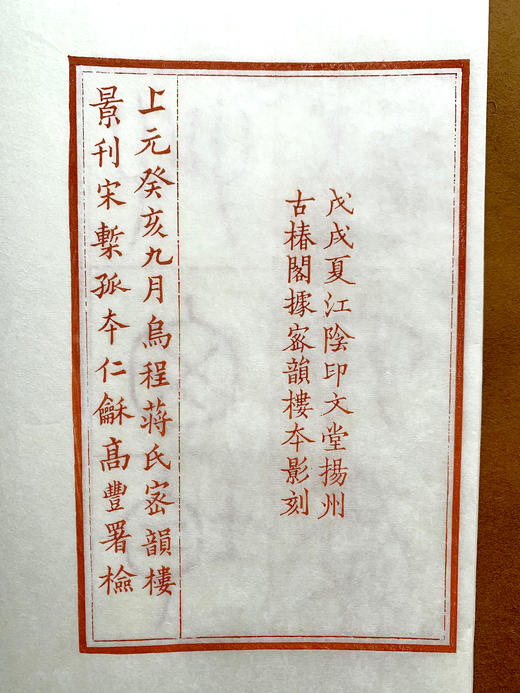 戊戌夏江陰印文堂揚州
古椿閣據宻韻樓本影刻
上元癸亥九月烏程蔣氏宻韻樓
景刊宋槧孤夲仁龢高豐署檢